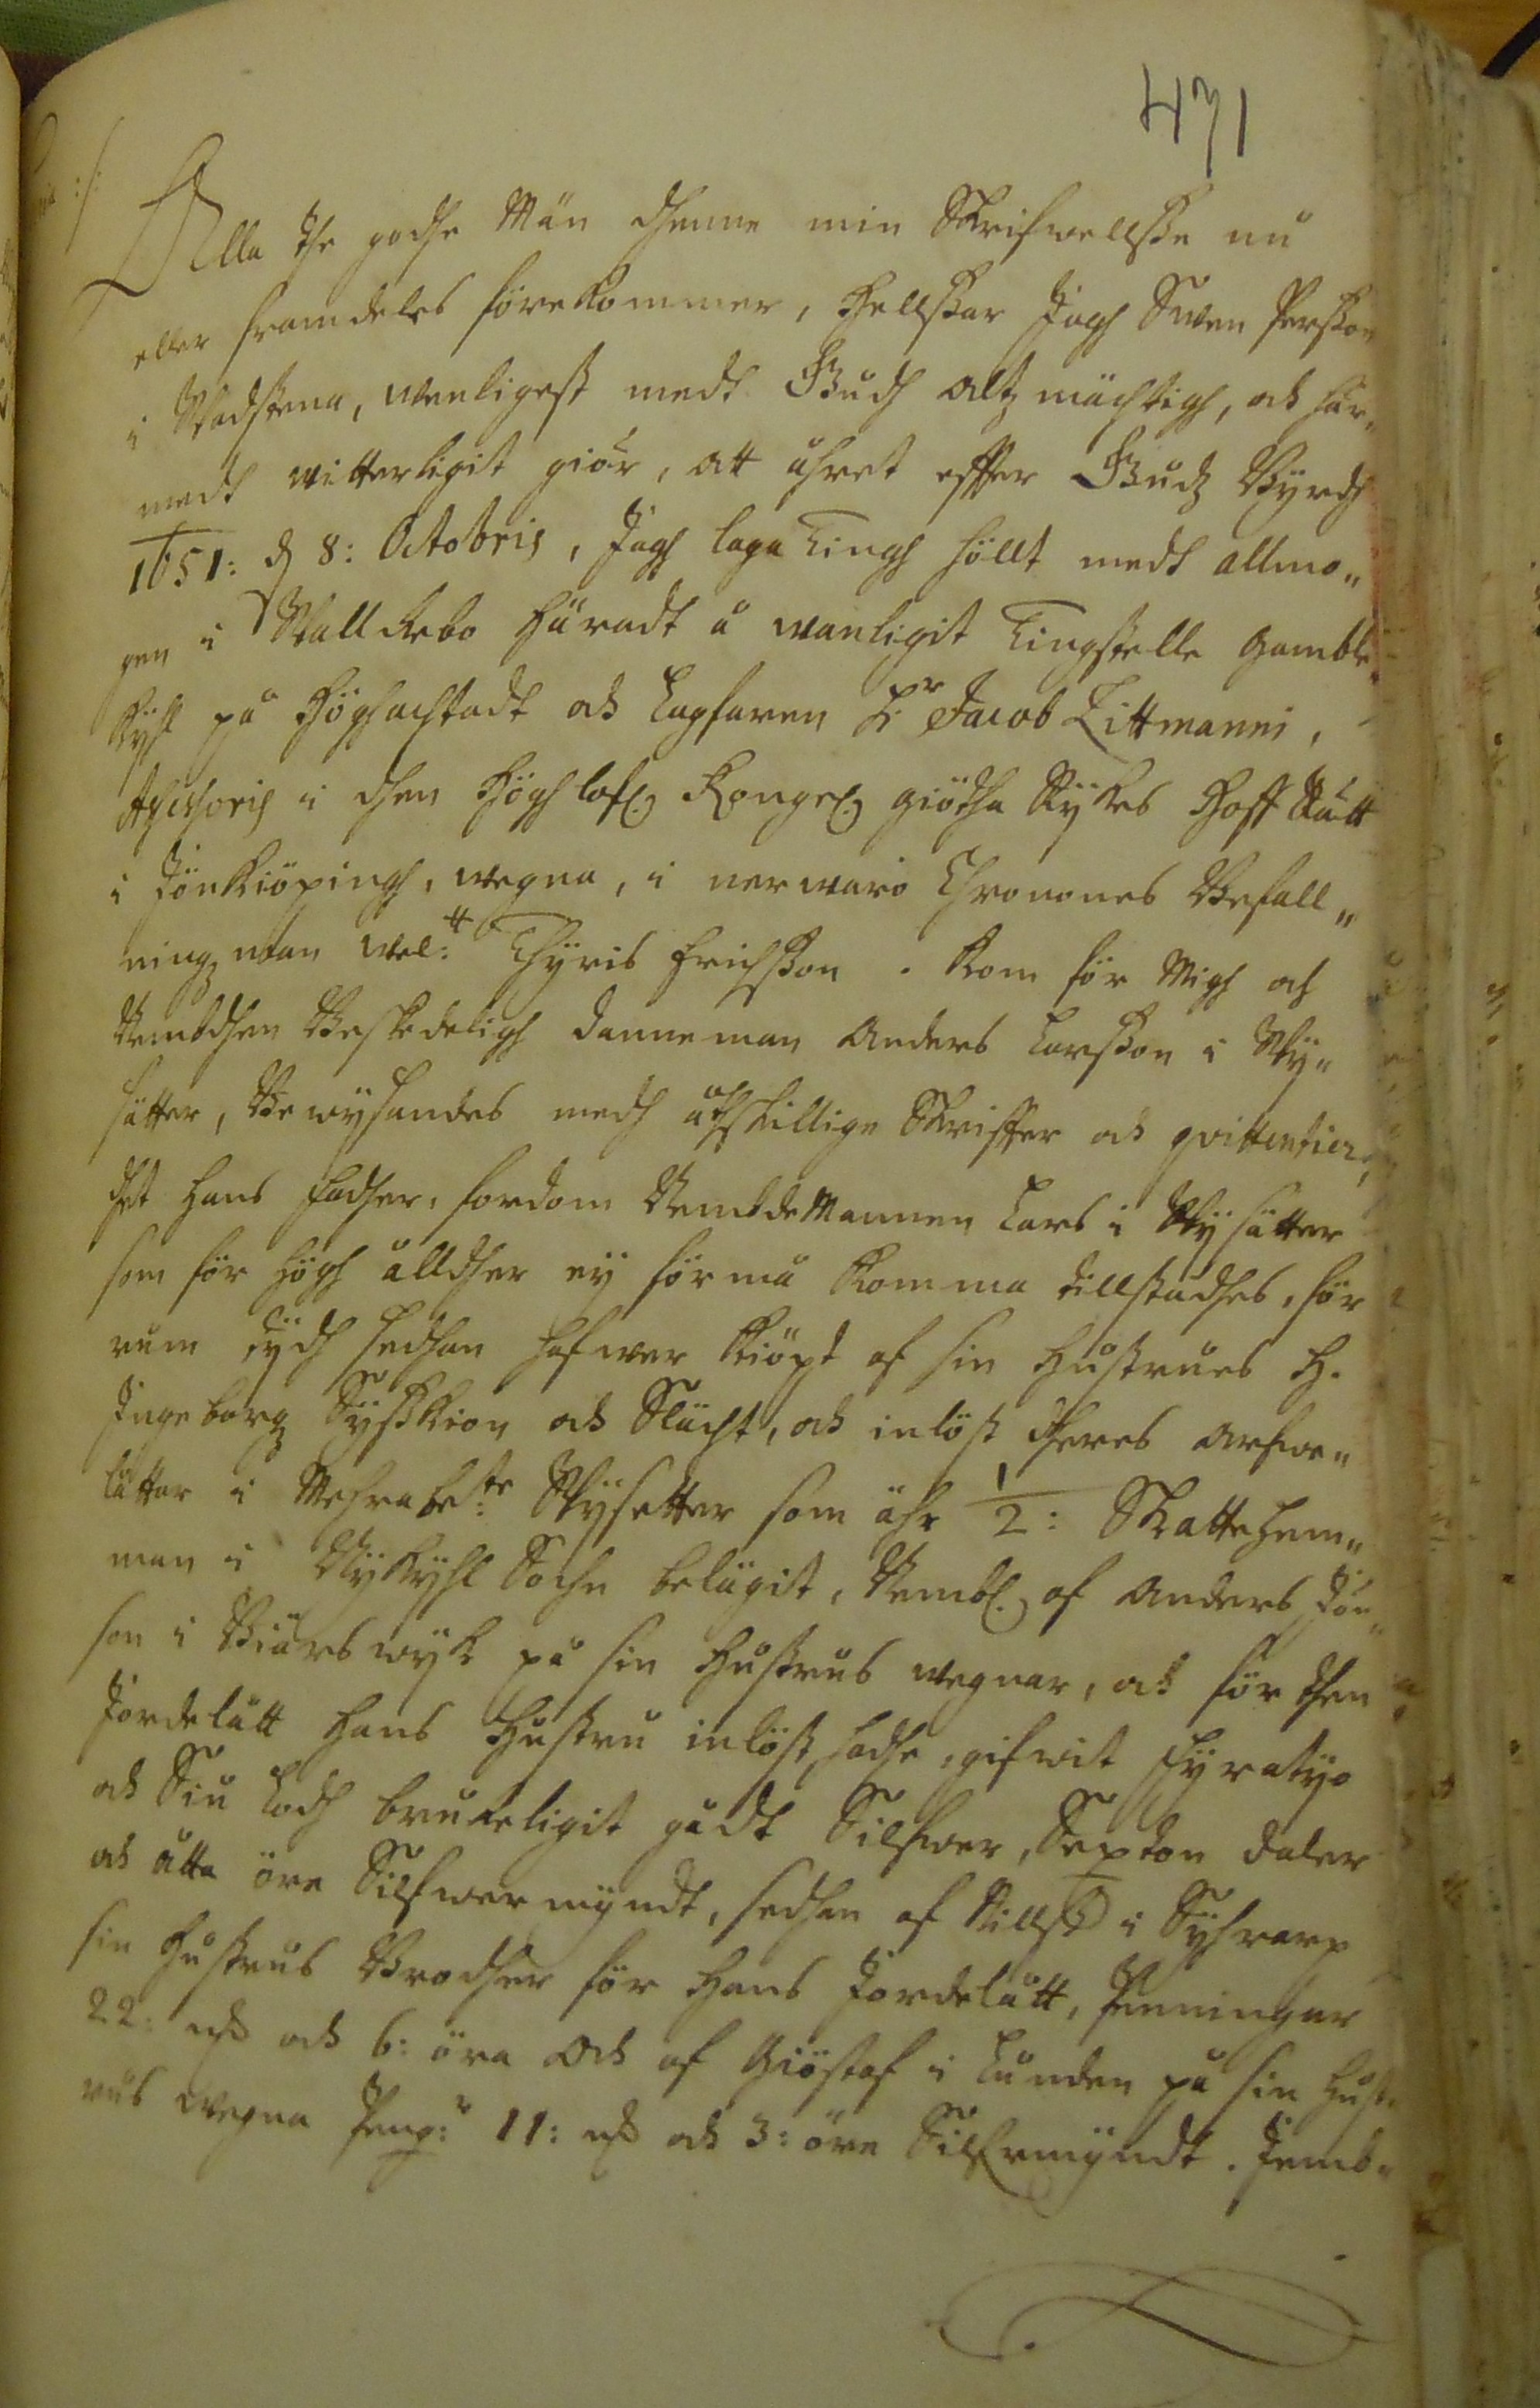 471
Alla the godhe Män dhenne min Skrifwellsse nu
eller framdeles förekommer, Hellssar Jagh Swen Persson
i Wadstena, wenligest medh Gudh altz mächtigh, och här„
medh witterligit giör, att åhret effter Gudz Byrdh
1651: d 8: Octobris, Jagh laga Tingh höllt medh allmo„
gen i Wallkebo Häradt å wanligit Tingstelle Gamble„
Kijhl på Höghachtadt och Lagfaren Hr Jacob Zittmanni,
Assessoris i dhen Höghlofl. Kongel. Giötha Rijkes Hoff Rätt
i Jönkiöpingh, wegna, i nerwaro Chronones Befall„
ningz man Wel:tt Thyris Erichsson. Kom för Migh och
Nembdhen Beskedeligh Danneman Anders Larsson i Nÿ„
sätter, Bewijsandes medh åthskillige Skriffter och qvittentier,
dhet hans fadher, fordom Nembdemannen Lars i Nÿsätter
som för högh ålldher eÿ förmå komma tillstädhes, för
rum tijdh sedhan hafwer Kiöpt af sin Hustrues H.
Ingeborgz Sÿsskion och Slächt, och inlöst dheres arfwe„
låttar i Mehrabe:te Nÿsetter som ähr 1/2: Skattehem„
man i Nÿkÿhl Sochn belägit, Nembl. af Anders Jön„
son i Biärswijk på sin Hustrus wegnar, och för then
Jordelått hans Hustru inlöst hadhe, gifwit Fÿratijo
och Siu Lodh brukeligit gådt Silfwer, Sexton daler
och åtta öre Silfwermÿndt, sedhan af Nills i Sÿhrarp
sin Hustrus Brodher för hans Jordelått, Penningar
22: md och 6: öra Och af Giöstaf i Lunden på sin Hust„
rus wegna Peng:r 11: md och 3: öre Silfrmÿndt. Jemb„